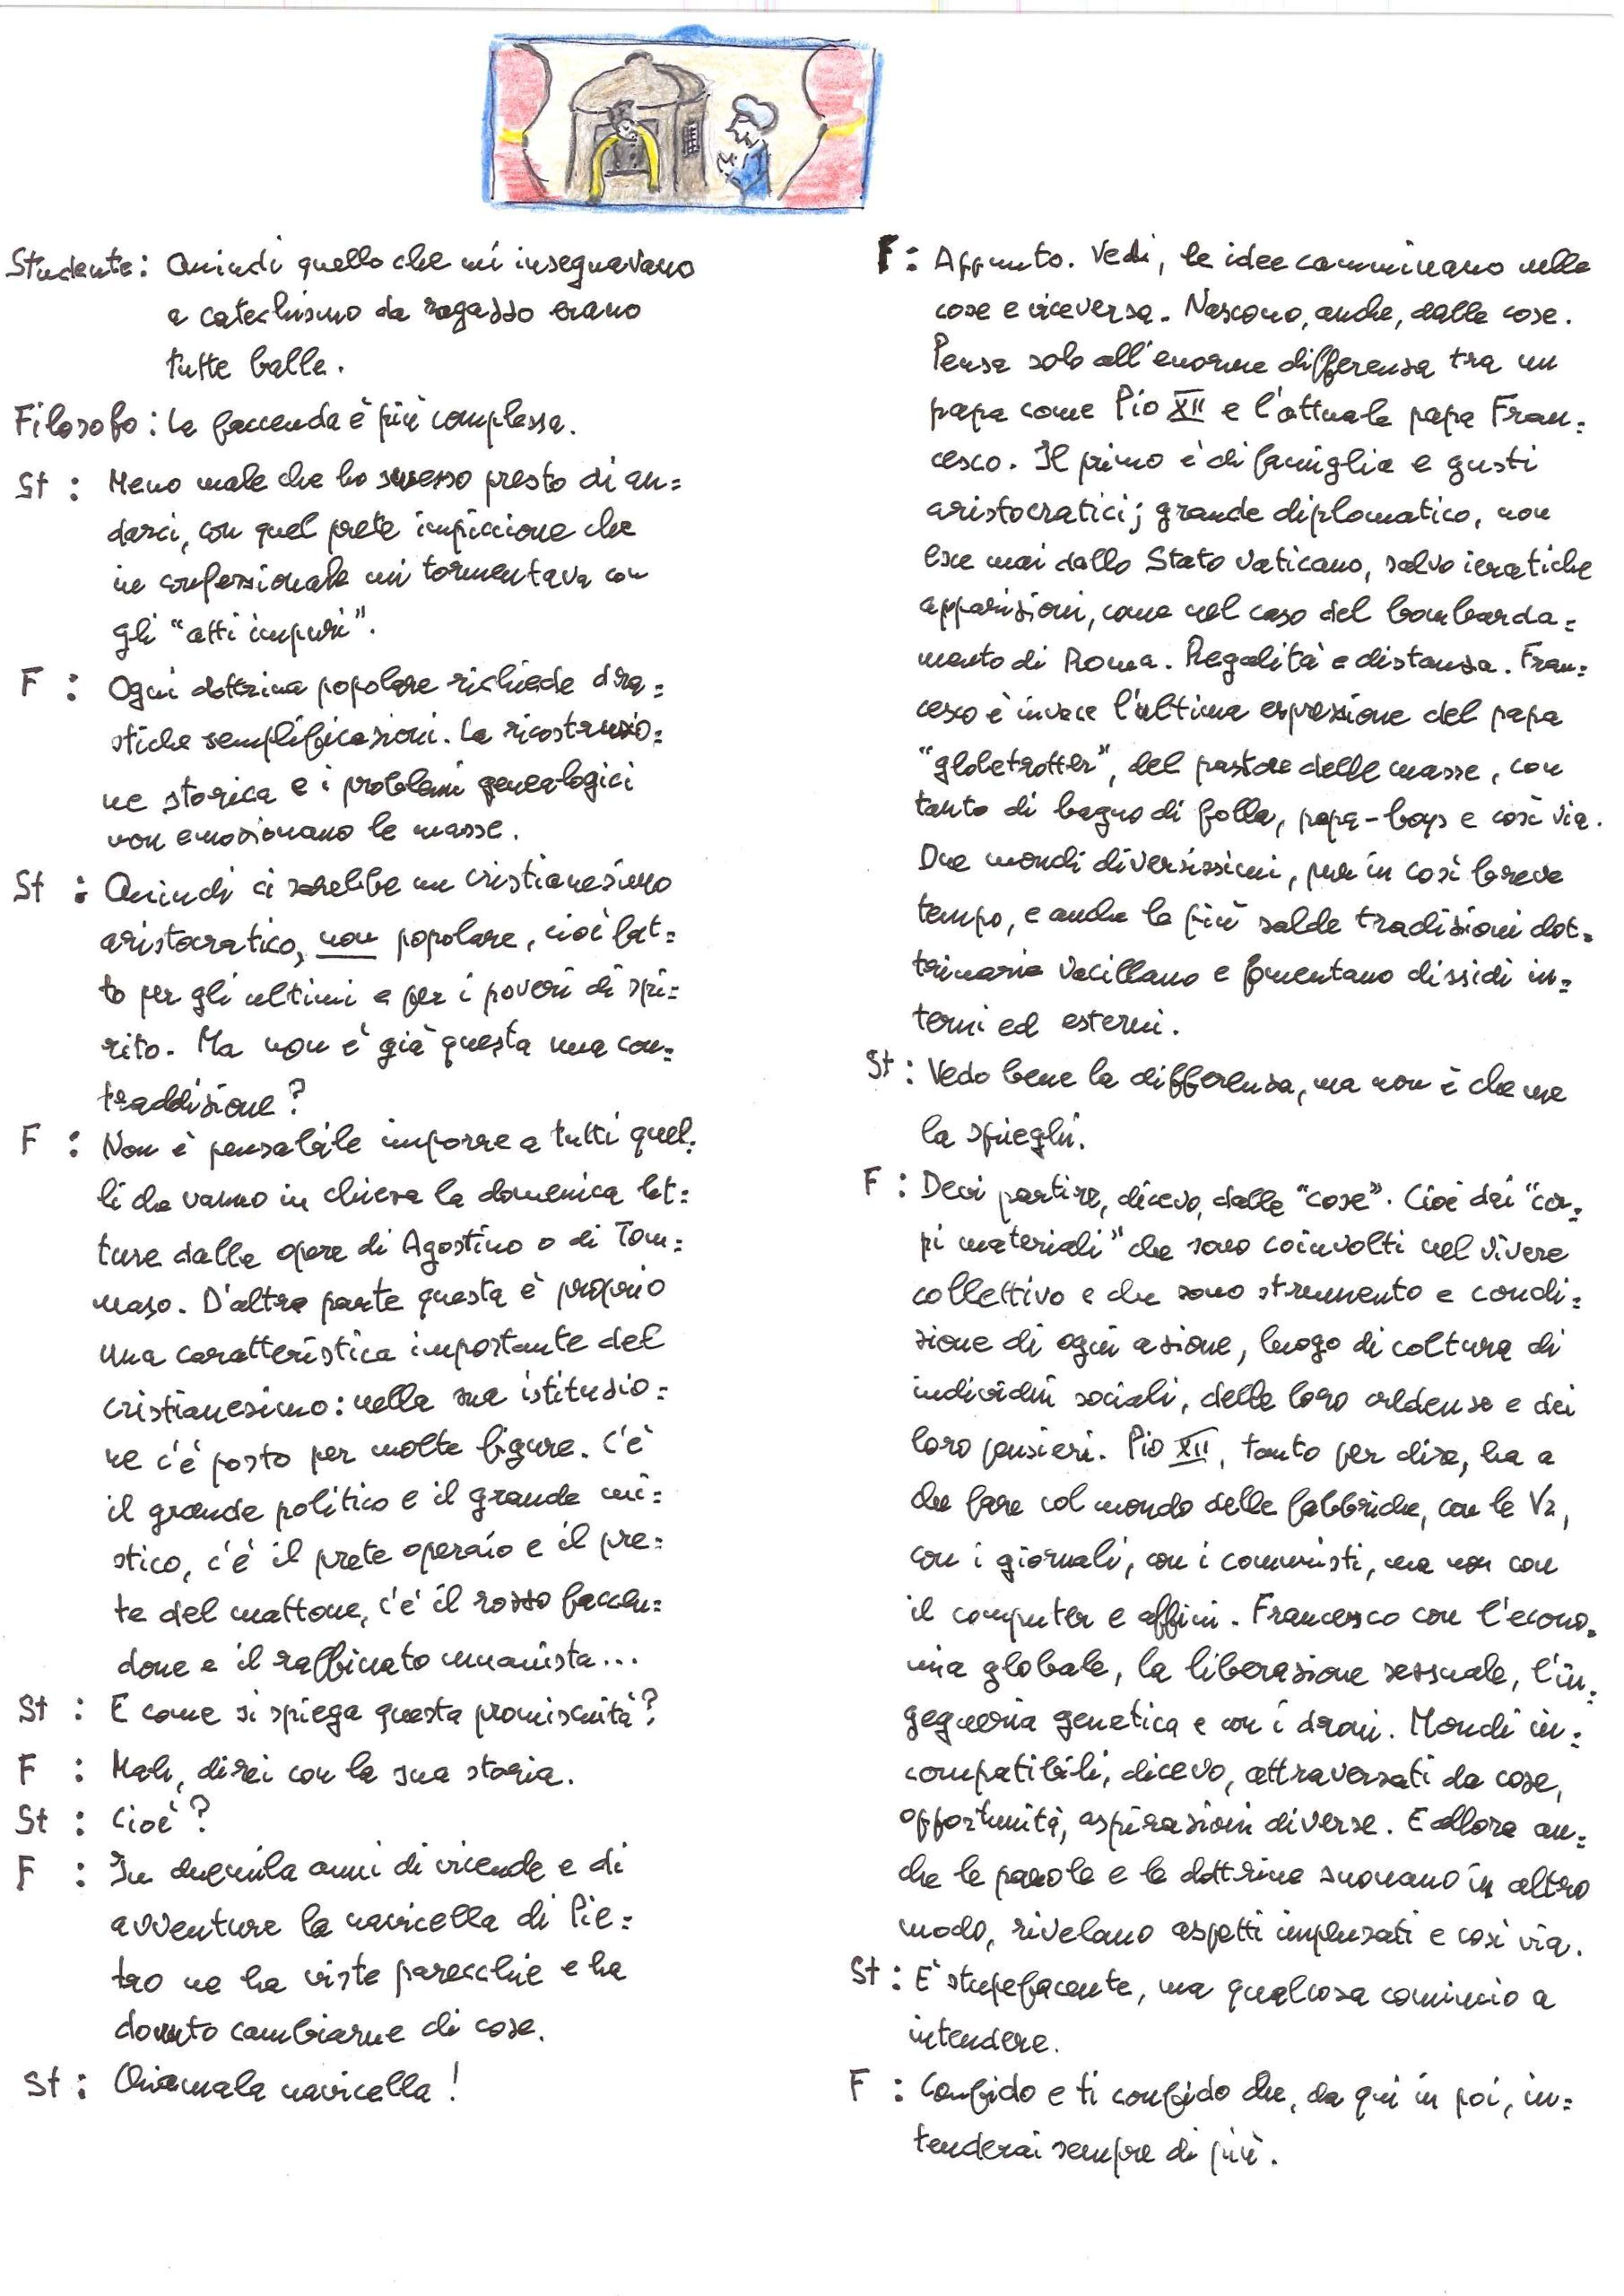 Studente: Quindi quello che mi insegnavano
a catechismo da ragazzo erano
tutte balle.
Filosofo: La faccenda è più complessa.
St: Meno male che ho smesso presto di an=
darci, con quel prete impiccione che
in confessionale mi tormentava con
gli "atti impuri".
F: Ogni dottrina popolare richiede dra=
stiche semplificazioni. La ricostruzio=
ne storica e i problemi genealogici
non emozionano le masse.
St: Quindi ci sarebbe un cristianesimo
aristocratico, non popolare, cioè fat=
to per gli ultimi e per i poveri di spi=
rito. Ma non è già questa una con=
traddizione?
F: Non è pensabile imporre a tutti quel=
li che vanno in chiesa la domenica let=
ture dalle opere di Agostino o di Tom=
maso. D'altra parte questa è proprio
una caratteristica importante del
cristianesimo: nella sua istituzio=
ne c'è posto per molte figure. C'è
il grande politico e il grande mi=
stico, c'è il prete operaio e il pre=
te del mattone, c'è il rozzo faccen=
done e il raffinato umanista...
St: E come si spiega questa promiscuità?
F: Mah, direi con la sua storia.
St: Cioè?
F: In duemila anni di vicende e di
avventure la navicella di Pie=
tro ne ha viste parecchie e ha
dovuto cambiarne di cose.
St: Chiamala navicella!
F: Appunto. Vedi, le idee camminano nelle
cose e viceversa. Nascono, anche, dalle cose.
Pensa solo all'enorme differenza tra un
papa come Pio XII e l'attuale papa Fran=
cesco. Il primo è di famiglia e gusti
aristocratici; grande diplomatico, non
esce mai dallo Stato Vaticano, salvo ieratiche
apparizioni, come nel caso del bombarda=
mento di Roma. Regalità e distanza. Fran=
cesco è invece l'ultima espressione del papa
"globetrotter", del pastore delle masse, con
tanto di bagno di folla, papa-boys e così via.
Due mondi diversissimi, pur in così breve
tempo, e anche le più salde tradizioni dot=
trinarie vacillano e fomentano dissidi in=
terni ed esterni.
St: Vedo bene la differenza, ma non è che me
la spieghi.
F: Devi partire, dicevo, dalle "cose". Cioè dai "cor=
pi materiali" che sono coinvolti nel vivere
collettivo e che sono strumento e condi=
zione di ogni azione, luogo di coltura di
individui sociali, delle loro credenze e dei
loro pensieri. Pio XII, tanto per dire, ha a
che fare col mondo delle fabbriche, con le V2,
con i giornali, con i comunisti, ma non con
il computer e affini. Francesco con l'econo=
mia globale, la liberazione sessuale, l'in=
gegneria genetica e con i droni. Mondi in=
compatibili, dicevo, attraversati da cose,
opportunità, aspirazioni diverse. E allora an=
che le parole e le dottrine suonano in altro
modo, rivelano aspetti impensati e così via.
St: E' stupefacente, ma qualcosa comincio a
intendere.
F: Confido e ti confido che, da qui in poi, in=
tenderai sempre di più.